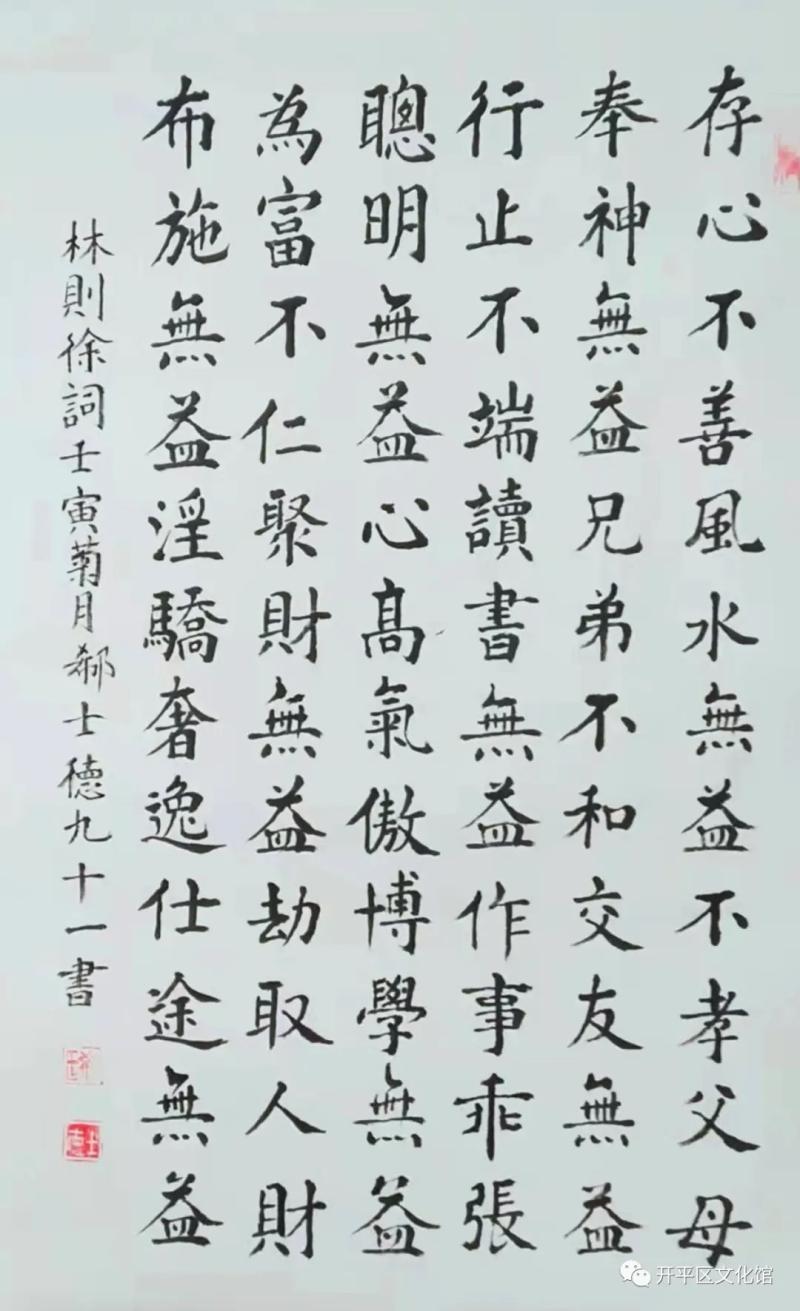 存心不善風水無益不孝父母
奉神無益兄弟不和交友無益
行止不端讀書無益作事乖張
聰明無益心高氣傲博學無益
為富不仁聚財無益劫取人財
布施無益淫驕奢逸仕途無益
林則徐詞壬寅菊月郝士德九十一書
开平区文化馆